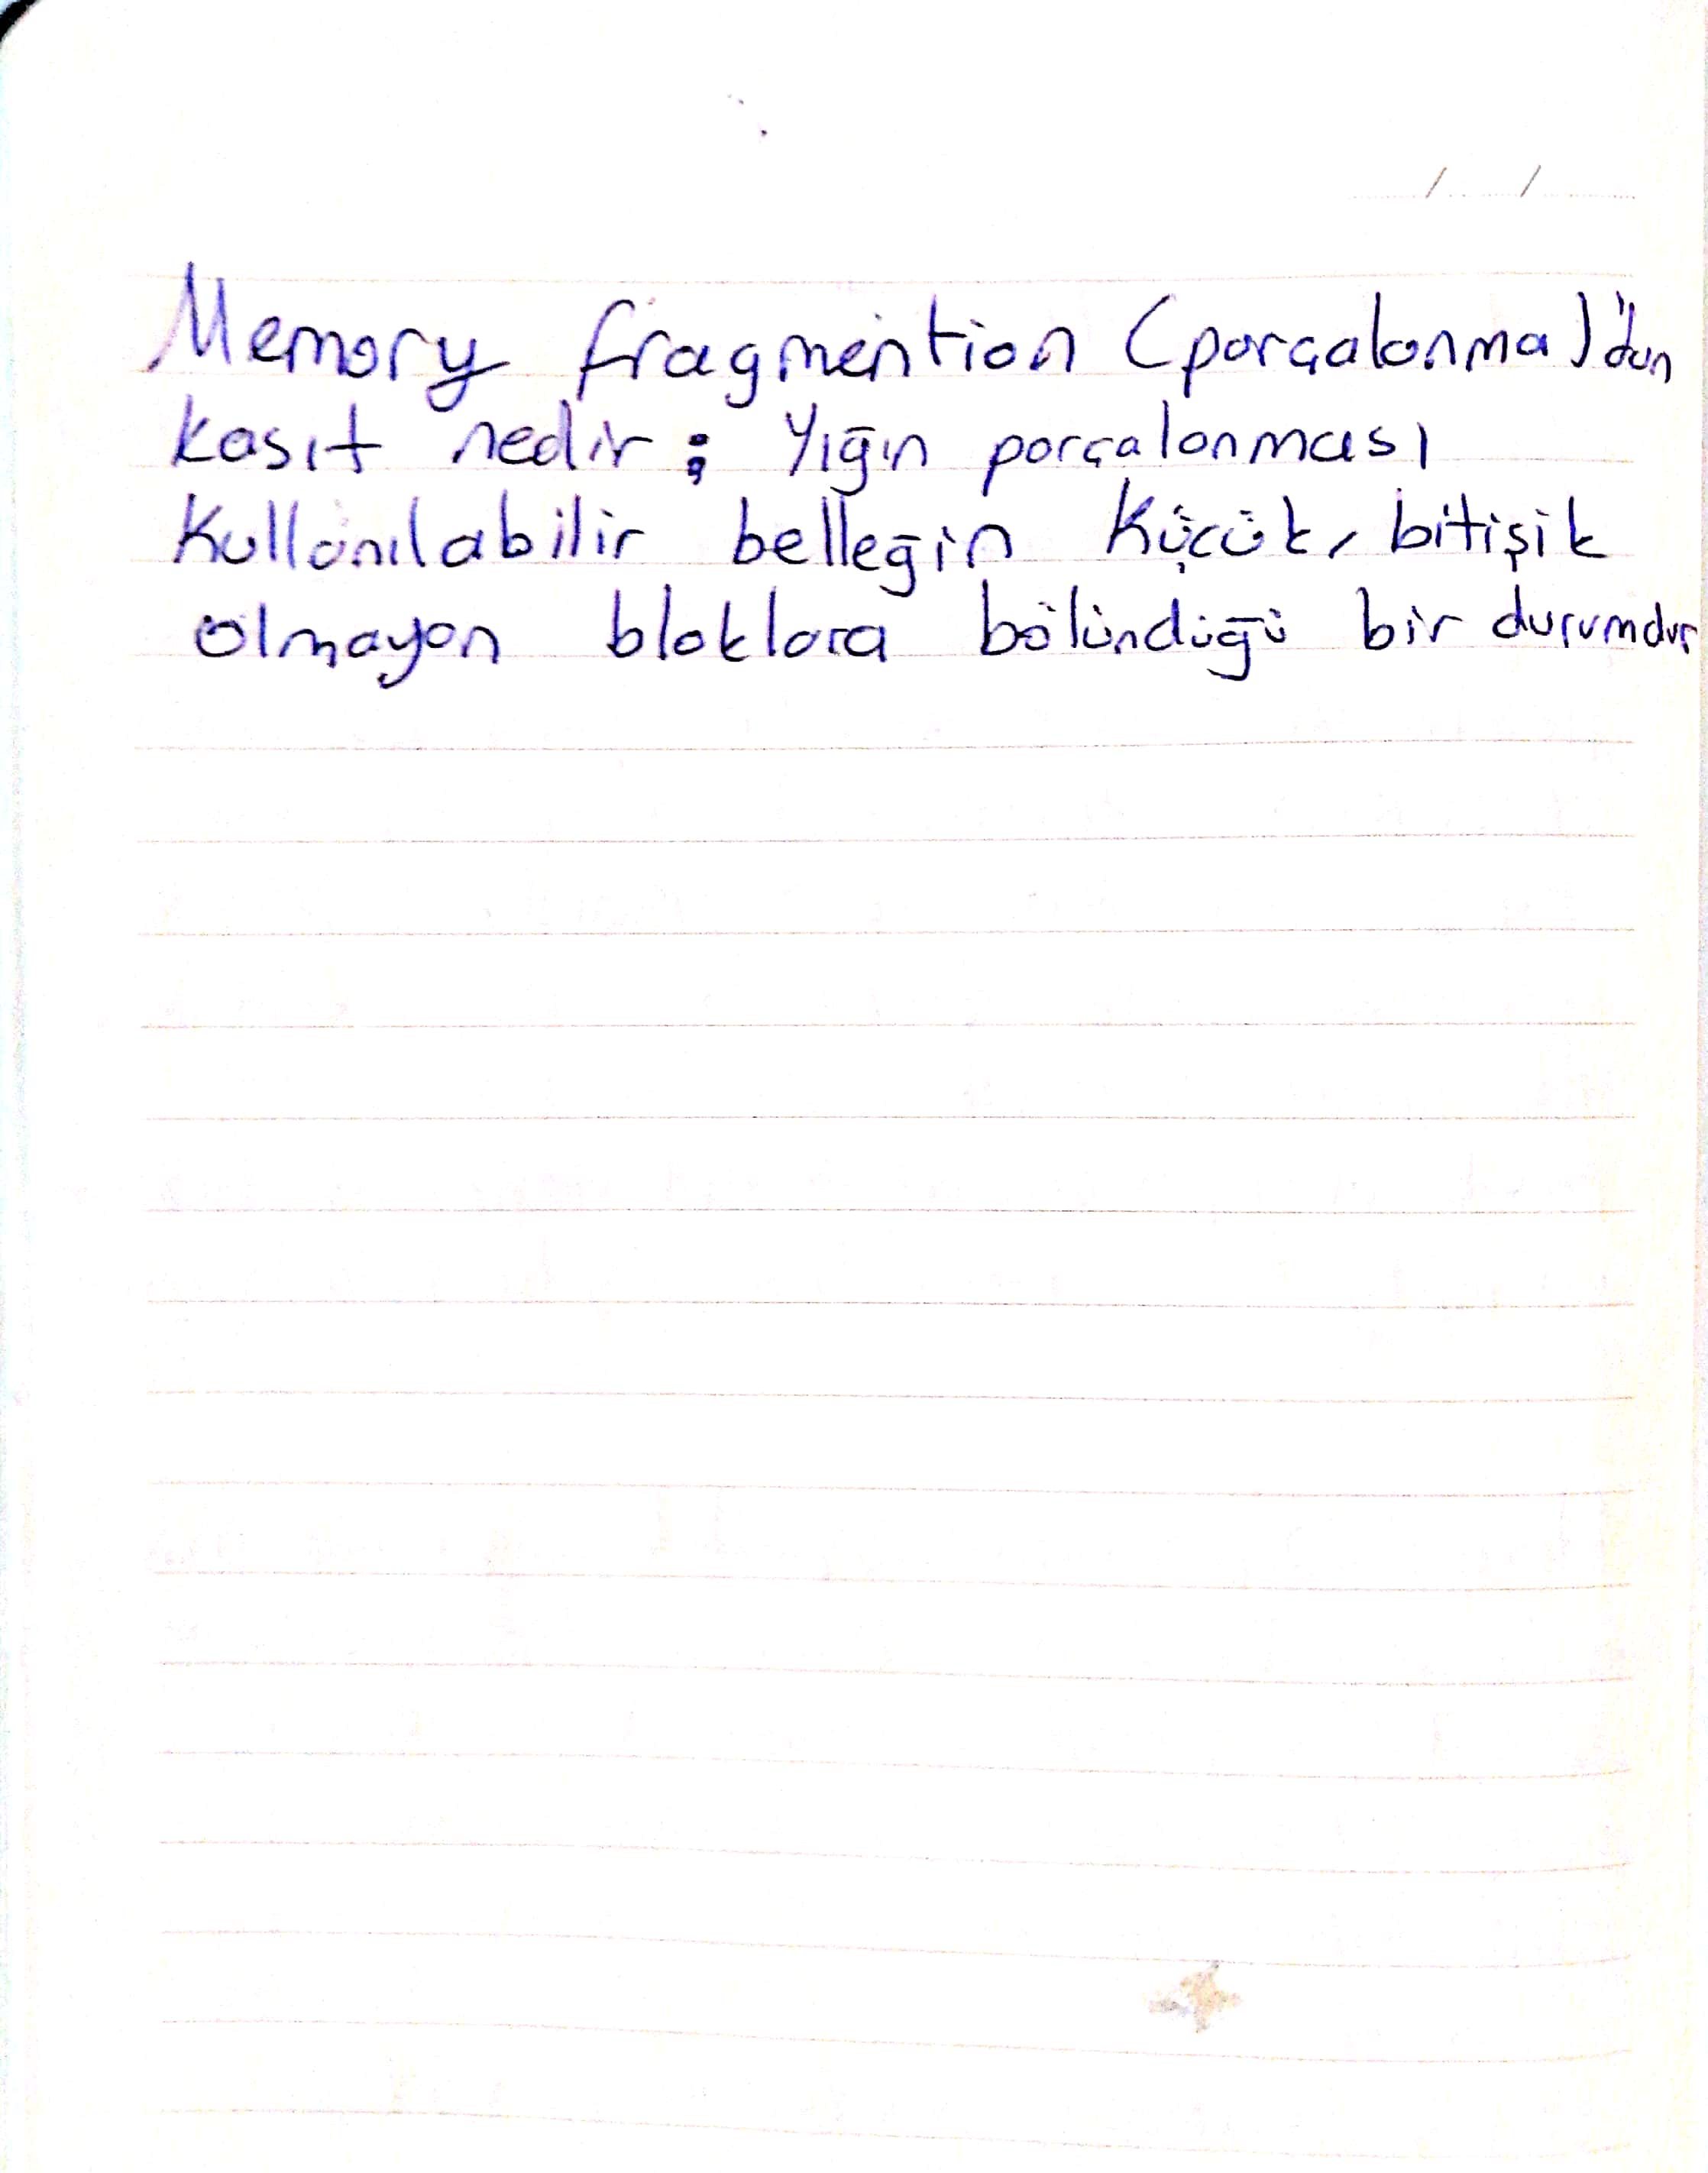 Memory fragmention (parçalanma)'dan
kasıt nedir ; Yığın parçalanması
Kullanılabilir belleğin Küçük, bitişik
olmayan bloklara bölündüğü bir durumdur